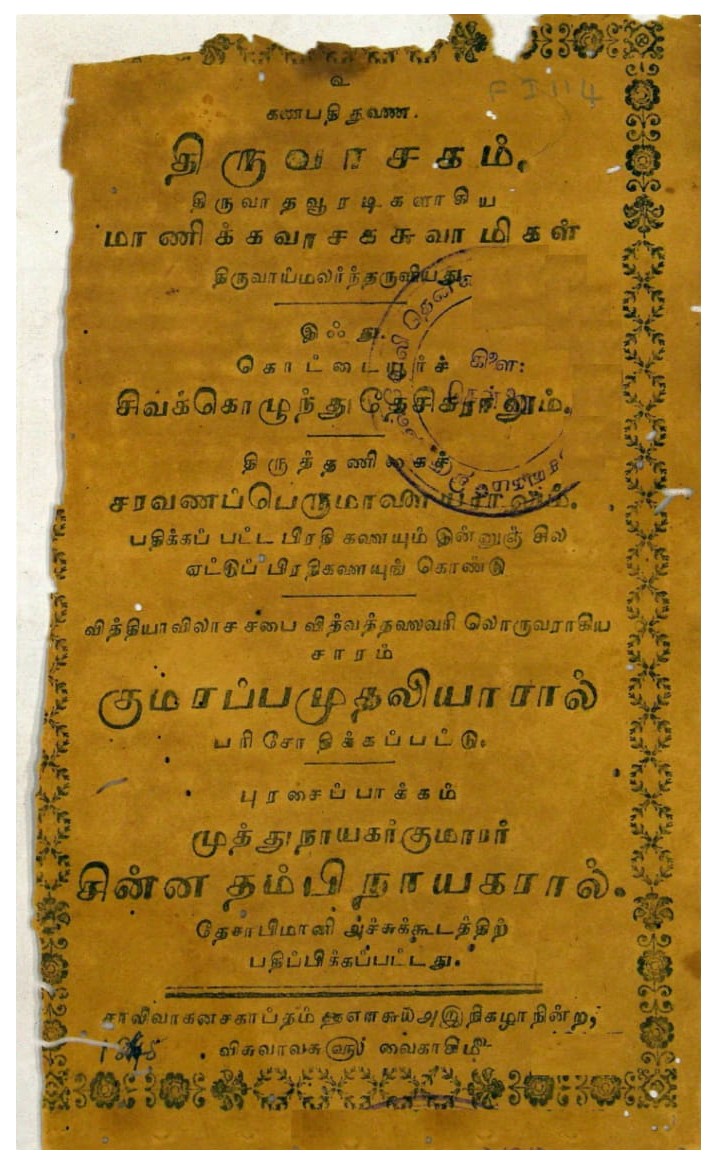 உ
கணபதி துணை.
திருவாசகம்.
திருவாதவூரடிகளாகிய
மாணிக்கவாசகசுவாமிகள்
திருவாய்மலர்ந்தருளியது
இஃது.
கொட்டையூர்ச்
சிவக்கொழுந்துதேசிகரானும்.
திருத்தணிகைச்
சரவணப்பெருமாளையரானும்.
பதிக்கப் பட்ட பிரதி களையும் இன்னுஞ் சில
ஏட்டுப் பிரதிகளையுங் கொண்டு
வித்தியாவிலாச சபை வித்வத்தலைவரி லொருவராகிய
சாரம்
குமரப்பமுதலியாரால்
பரிசோதிக்கப்பட்டு.
புரசைப்பாக்கம்
முத்துநாயகர்குமாரர்
சின்ன தம்பிநாயகரால்.
தேசாபிமானி அச்சுக்கூடத்திற்
பதிப்பிக்கப்பட்டது.
சாலிவாகனசகாப்தம் ௲௭௱௬௰௮இநிகழாநின்ற,
விசுவாவசு௵ வைகாசி௴